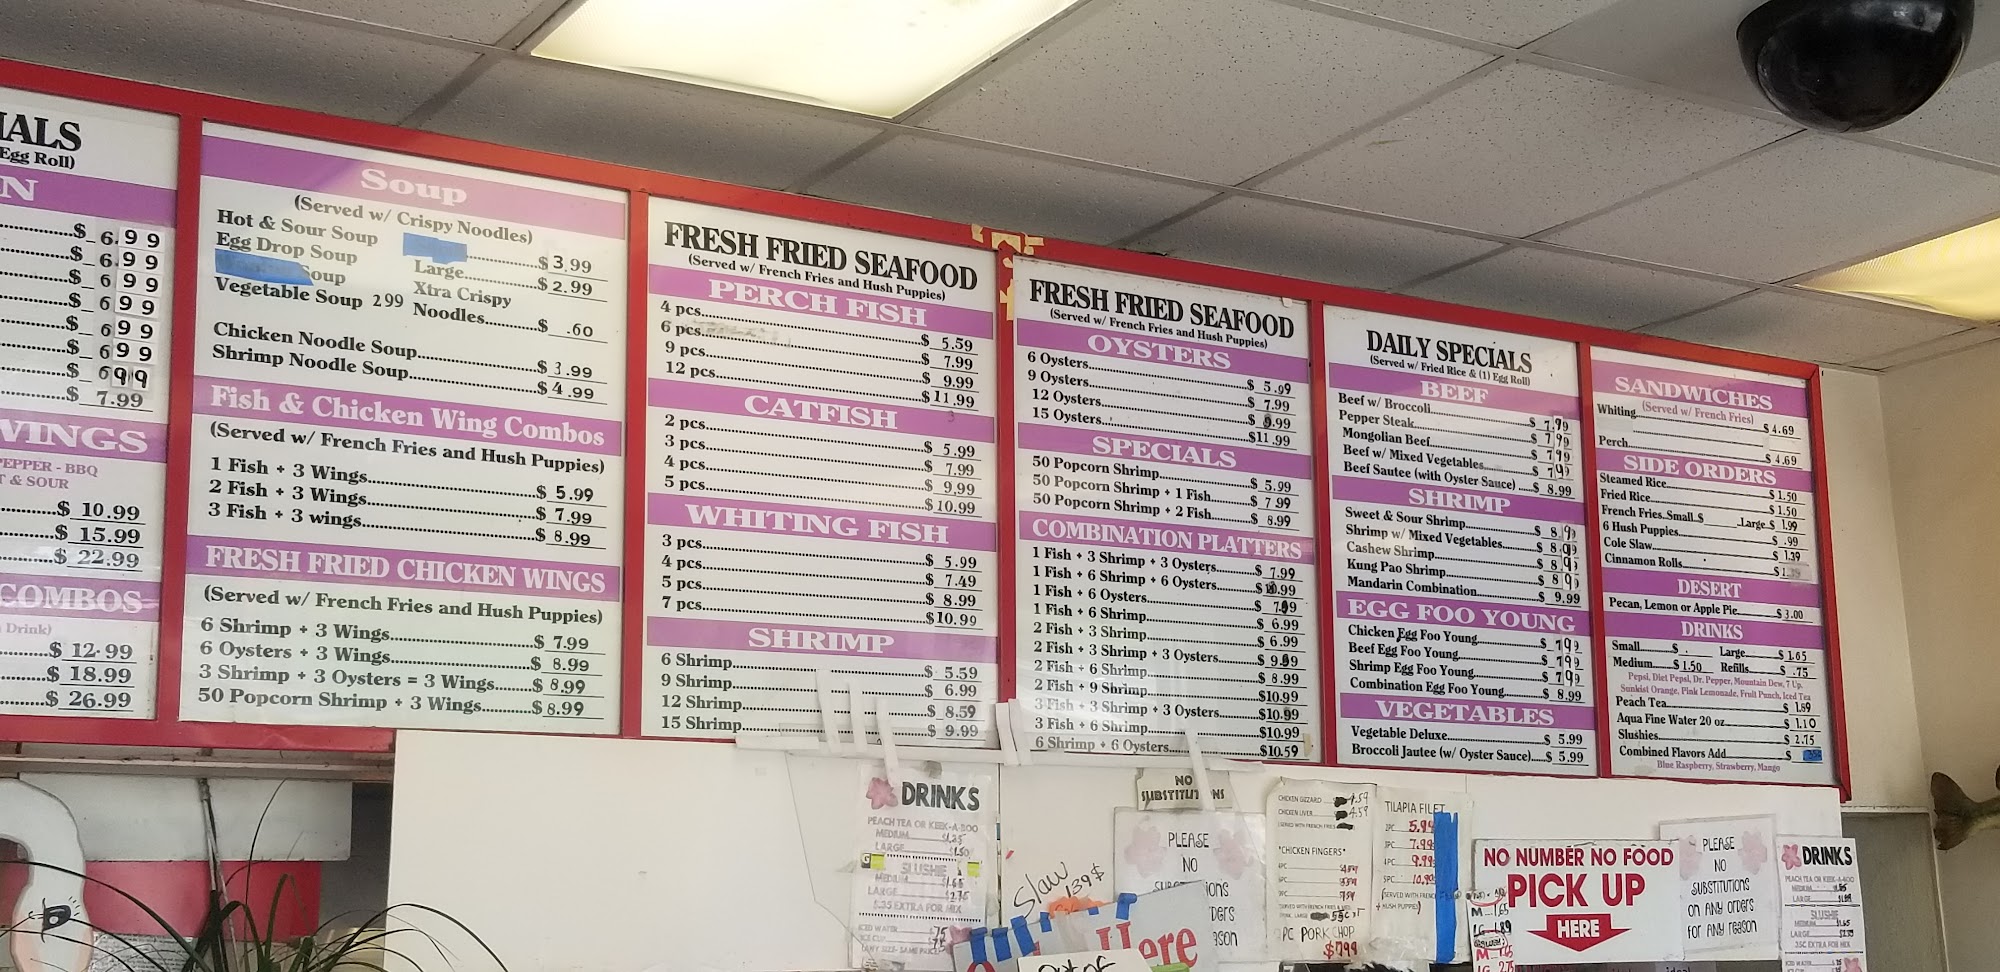 IALS
Egg Roll)
N
$ 6.99
$ 6.99
$ 699
$ 699
$ 699
$ 699
$ 699
$ 7.99
WINGS
PEPPER - BBQ
T & SOUR
$ 10.99
$ 15.99
$ 22.99
COMBOS
Drink)
$ 12.99
$ 18.99
$ 26.99
Soup
(Served w/ Crispy Noodles)
Hot & Sour Soup
Egg Drop Soup
Soup
Vegetable Soup 299
$ 3.99
Large $ 2.99
Xtra Crispy
Noodles $ .60
Chicken Noodle Soup $ 3.99
Shrimp Noodle Soup $ 4.99
Fish & Chicken Wing Combos
(Served w/ French Fries and Hush Puppies)
1 Fish + 3 Wings $ 5.99
2 Fish + 3 Wings $ 7.99
3 Fish + 3 wings $ 8.99
FRESH FRIED CHICKEN WINGS
(Served w/ French Fries and Hush Puppies)
6 Shrimp + 3 Wings $ 7.99
6 Oysters + 3 Wings $ 8.99
3 Shrimp + 3 Oysters = 3 Wings $ 8.99
50 Popcorn Shrimp + 3 Wings $ 8.99
FRESH FRIED SEAFOOD
(Served w/ French Fries and Hush Puppies)
PERCH FISH
4 pcs $ 5.59
6 pcs $ 7.99
9 pcs $ 9.99
12 pcs $ 11.99
CATFISH
2 pcs $ 5.99
3 pcs $ 7.99
4 pcs $ 9.99
5 pcs $10.99
WHITING FISH
3 pcs $ 5.99
4 pcs $ 7.49
5 pcs $ 8.99
7 pcs $10.99
SHRIMP
6 Shrimp $ 5.59
9 Shrimp $ 6.99
12 Shrimp $ 8.59
15 Shrimp $ 9.99
FRESH FRIED SEAFOOD
(Served w/ French Fries and Hush Puppies)
OYSTERS
6 Oysters $ 5.99
9 Oysters $ 7.99
12 Oysters $ 9.99
15 Oysters $11.99
SPECIALS
50 Popcorn Shrimp $ 5.99
50 Popcorn Shrimp + 1 Fish $ 7.99
50 Popcorn Shrimp + 2 Fish $ 8.99
COMBINATION PLATTERS
1 Fish + 3 Shrimp + 3 Oysters $ 7.99
1 Fish + 6 Shrimp + 6 Oysters
1 Fish + 6 Oysters $ 7.99
1 Fish + 6 Shrimp $ 6.99
2 Fish + 3 Shrimp $ 6.99
2 Fish + 3 Shrimp + 3 Oysters $ 9.99
2 Fish + 6 Shrimp $ 8.99
2 Fish + 9 Shrimp $10.99
3 Fish + 3 Shrimp + 3 Oysters $10.99
3 Fish + 6 Shrimp $10.99
6 Shrimp + 6 Oysters $10.59
DAILY SPECIALS
(Served w/ Fried Rice & (1) Egg Roll)
BEEF
Beef w/ Broccoli $ 7.99
Pepper Steak $ 799
Mongolian Beef $ 799
Beef w/ Mixed Vegetables $ 799
Beef Sautee (with Oyster Sauce) $ 8.99
SHRIMP
Sweet & Sour Shrimp $ 899
Shrimp w/ Mixed Vegetables $ 899
Cashew Shrimp $ 899
Kung Pao Shrimp $ 899
Mandarin Combination $ 9.99
EGG FOO YOUNG
Chicken Egg Foo Young $ 799
Beef Egg Foo Young $ 799
Shrimp Egg Foo Young $ 799
Combination Egg Foo Young $ 8.99
VEGETABLES
Vegetable Deluxe $ 5.99
Broccoli Jautee (w/ Oyster Sauce) $ 5.99
SANDWICHES
(Served w/ French Fries)
Whiting $ 4.69
Perch $ 4.69
SIDE ORDERS
Steamed Rice $ 1.50
Fried Rice $ 1.50
French Fries Small $ Large $ 1.99
6 Hush Puppies $ .99
Cole Slaw $ 1.39
Cinnamon Rolls $ 1.39
DESERT
Pecan, Lemon or Apple Pie $ 3.00
DRINKS
Small $ . Large $ 1.65
Medium $ 1.50 Refills $ .75
Pepsi, Diet Pepsi, Dr. Pepper, Mountain Dew, 7 Up,
Sunkist Orange, Pink Lemonade, Fruit Punch, Iced Tea
Peach Tea $ 1.89
Aqua Fine Water 20 oz $ 1.10
Slushies $ 2.75
Combined Flavors Add $
Blue Raspberry, Strawberry, Mango
DRINKS
PEACH TEA OR KEEK-A-BOO
MEDIUM $1.25
LARGE $1.50
SLUSHIE
MEDIUM $1.65
LARGE $2.75
$.35 EXTRA FOR MIX
ICED WATER
Slaw
139$
NO
SUBSTITUTIONS
PLEASE
NO
CHICKEN GIZZARD 4.59
CHICKEN LIVER 4.59
*CHICKEN FINGERS*
PC PORK CHOP
$799
TILAPIA FILET
2PC 5.99
3PC 7.99
4PC 9.99
5PC 10.99
(SERVED WITH
+ HUSH PUPPIES)
M 1.65
LG 1.89
M 1.65
LG 2.75
NO NUMBER NO FOOD
PICK UP
HERE
PLEASE
NO
SUBSTITUTIONS
ON ANY ORDERS
FOR ANY REASON
DRINKS
PEACH TEA OR KEEK-A-BOO
MEDIUM
LARGE
SLUSHIE
MEDIUM $1.65
LARGE
35C EXTRA FOR MIX
ICED WATER
Here
OUT OF